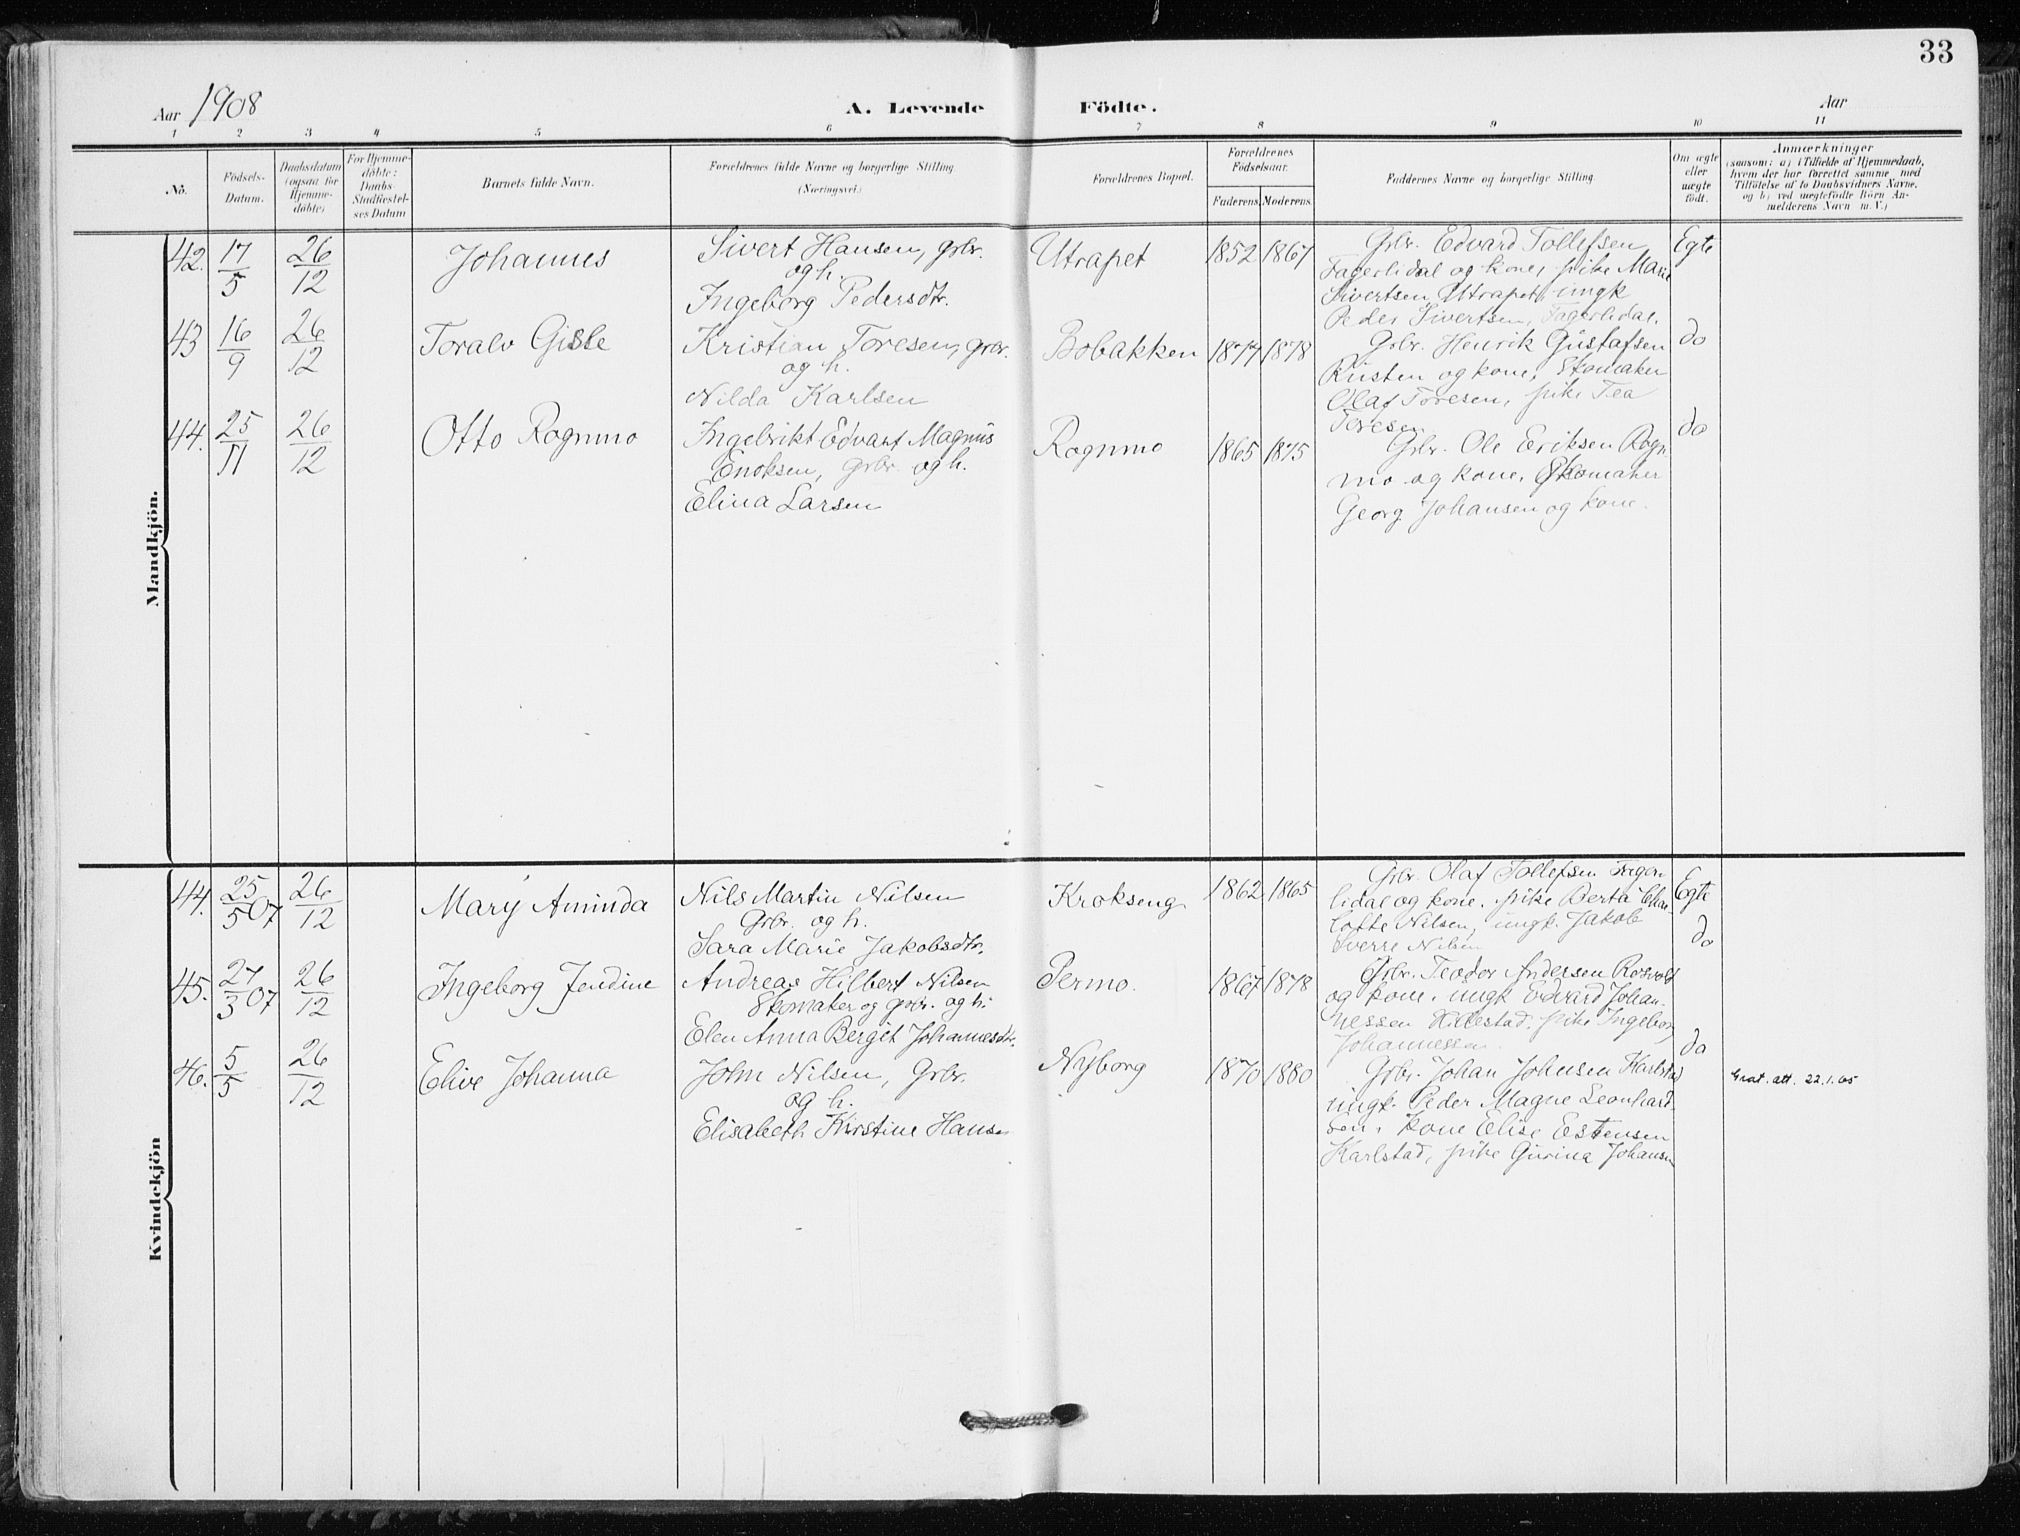 33
Aar 1908
A. Levende Födte.
Aar
1 2 3 4 5 6 7 8 9 10 11
No.
Födsels-
Datum.
Daabsdatum
(ogsaa for
Hjemme-
döbte)
For Hjemme-
döbte:
Daabs-
Stadfæstel-
ses Datum
Barnets fulde Navn.
Forældrenes fulde Navne og borgerlige Stilling
(Næringsvei.)
Forældrenes Bopæl.
Forældrenes
Födselsaar.
Faderens. Moderens.
Faddernes Navne og borgerlige Stilling.
Om ægte
eller
uægte
født.
Anmærkninger
(saasom: a) i Tilfælde af Hjemmedaab,
hvem der har forrettet samme med
Tilføielse af to Daabsvidners Navne,
og b) ved uægtefødte Börn An-
melderens Navn m. V.)
Mandkjön.
42. 17/5 26/12 Johannes
Sivert Hansen, grbr.
og h.
Ingeborg Pedersdtr.
Utrapet 1852 1867
Grbr. Edvard Tollefsen
Fagerlidal og kone, pike Marie
Sivertsen Utrapet, ungk
Peder Sivertsen, Fagerlidal.
Egte
43 16/9 26/12 Toralv Gisle
Kristian Toresen, grbr.
og h.
Nilda Karlsen
Bobakken 1877 1878
Grbr. Henrik Gustafsen
Kusten og kone, Skomaker
Olaf Toresen, pike Tea
Toresen
do
44. 25/11 26/12 Otto Rognmo
Ingebrikt Edvart Magnus
Enoksen, grbr. og h.
Elina Larsen
Rognmo 1865 1875
Grbr. Ole Eriksen Rogn
mo og kone, Skomaker
Georg Johansen og kone.
do
Kvindekjön
44. 25/5 07 26/12 Mary Aminda
Nils Martin Nilsen
Grbr. og h.
Sara Marie Jakobsdtr.
Krokseng 1862 1865
Grbr. Olaf Tollefsen Fager
lidal og kone, pike Berta Char-
lotte Nilsen, ungk. Jakob
Sverre Nilsen
Egte
45. 27/3 07 26/12 Ingeborg Jendine
Andreas Hilbert Nilsen
Skomaker og grbr. og h.
Elen Anna Berget Johannesdtr.
Permo. 1867 1878
Grbr. Teodor Andersen Rosvold
og kone, ungk Edvard Johan-
nessen Hillestad, pike Ingeborg
Johannessen.
do
46. 5/5 26/12 Elive Johanna
John Nilsen, Grbr.
og h.
Elisabeth Kirstine Hansen
Nyborg 1870 1880
Grbr. Johan Johnsen Karlstad
ungk. Peder Magne Leonhard
sen, kone Elise Estensen
Karlstad, pike Gurina Johansen
do
Grat. att. 22.1.65